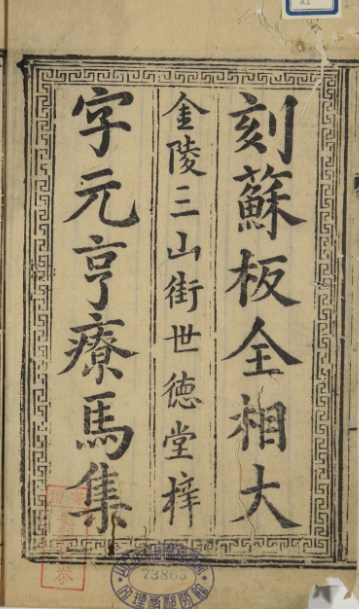 刻蘇板全相大
金陵三山街世德堂梓
字元亨療馬集
73863